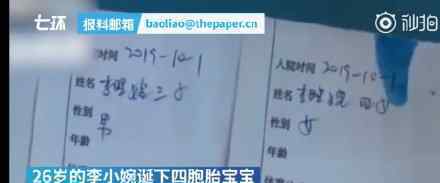 七环 报料邮箱 baoliao@thepaper.cn 秒拍
时间 2019-10-1
姓名 李
性别 男
年龄
入院时间 2019-10-1
姓名 李
性别 女
年龄
26岁的李小婉诞下四胞胎宝宝